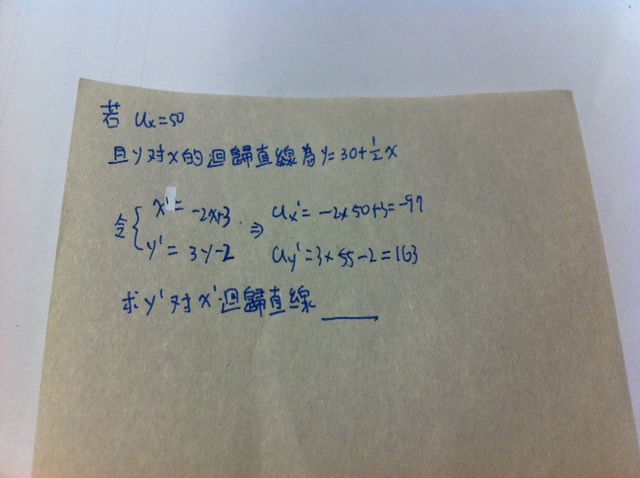 若 ux=50
且y对x的迴歸直線為y=30+½x
令{x'=-2x+3 ⇒ ux'=-2×50+3=-97
y'=3y-2 uy'=3×55-2=163
求y'对x'迴歸直線____